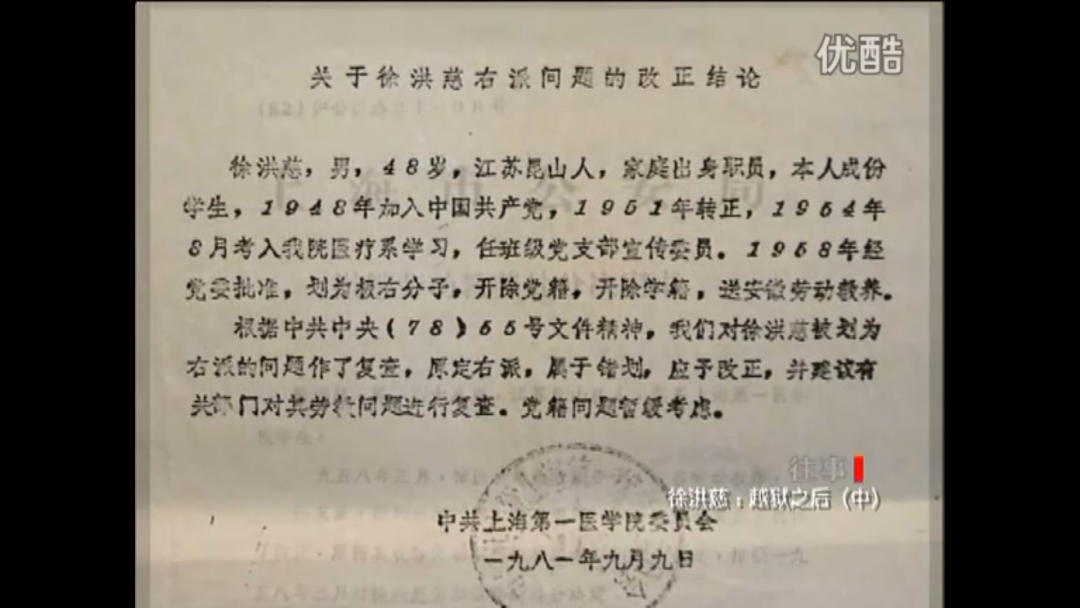 优酷
关于徐洪慈右派问题的改正结论
徐洪慈，男，48岁，江苏昆山人，家庭出身职员，本人成份
学生，1948年加入中国共产党，1951年转正，1954年
8月考入我院医疗系学习，任班级党支部宣传委员。1958年经
党委批准，划为极右分子，开除党籍，开除学籍，送安徽劳动教养。
根据中共中央(78)55号文件精神，我们对徐洪慈被划为
右派的问题作了复查，原定右派，属于错划，应予改正，并建议有
关部门对其劳教问题进行复查。党籍问题暂缓考虑。
往事
徐洪慈：越狱之后（中）
中共上海第一医学院委员会
一九八一年九月九日